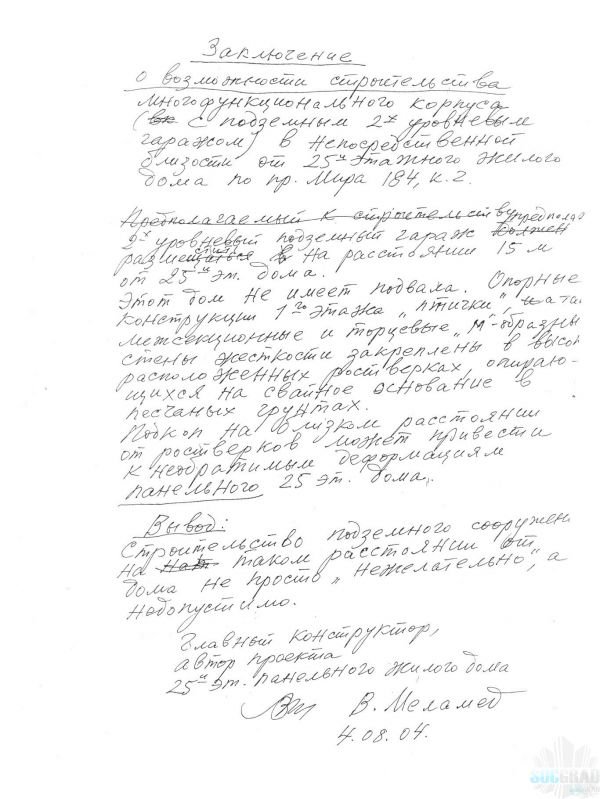 Заключение
о возможности строительства
многофункционального корпуса
(вк с подземным 2х уровневым
гаражом) в непосредственной
близости от 25и этажного жилого
дома по пр. Мира 184, к. 2.
Предполагаемый к строительству предполаг
2х уровневый подземный гараж должен
разместить в на расстоянии 15 м
от 25и эт. дома.
Этот дом не имеет подвала. Опорные
конструкции 1го этажа „птички", а та
межсекционные и торцевые „М"-образны
стены жесткости закреплены в высок
расположенных ростверках, опираю-
щихся на свайное основание в
песчаных грунтах.
Подкоп на близком расстоянии
от ростверков может привести
к необратимым деформациям
панельного 25 эт. дома.
Вывод:
Строительство подземного сооружен
на таком расстоянии от
дома не просто „нежелательно", а
недопустимо.
Главный конструктор,
автор проекта
25и эт. панельного жилого дома
В. Меламед
4.08.04.
SOCGRAD